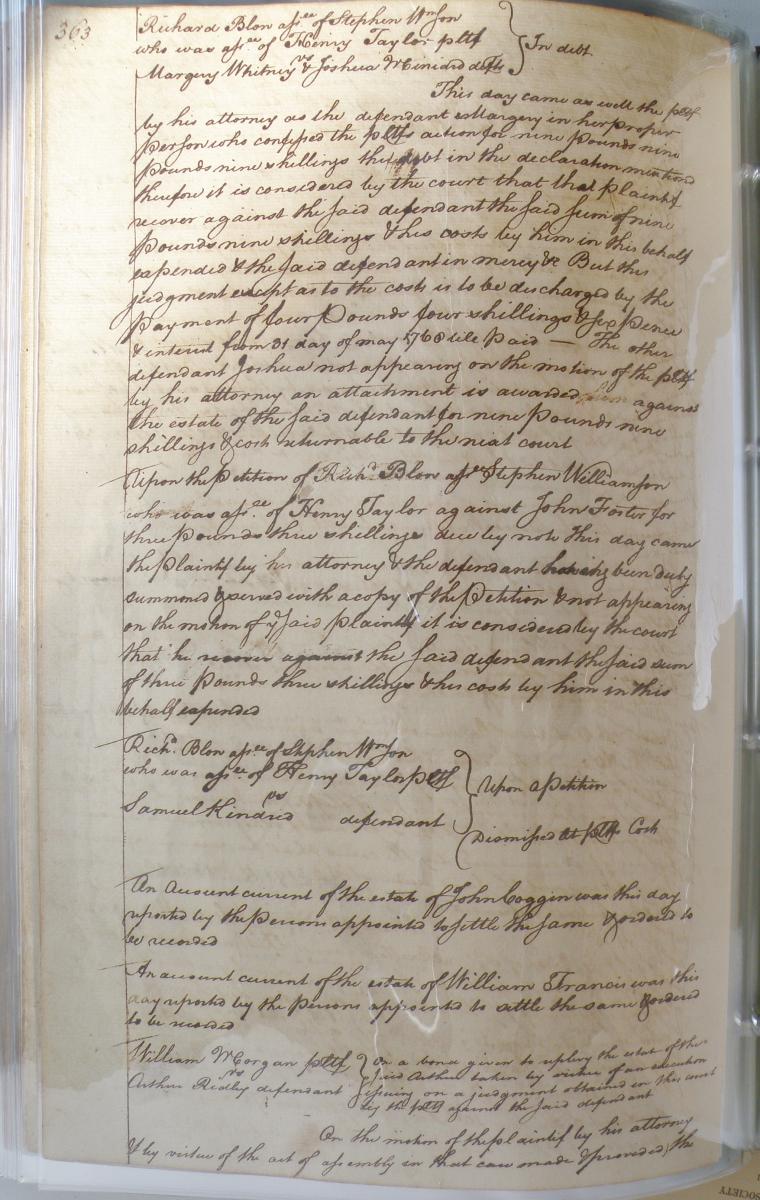 363
Richard Blow assee of Stephen Wmson
who was assee of Henry Taylor pltf
vs
Margery Whitney & Joshua defts
In debt
This day came as well the pltf
by his attorney as the defendant Margery in her proper
person who confessed the pltfs action for nine pounds nine
pounds nine shillings the debt in the declaration mentiond
therefore it is considered by the court that that plaintif
recover against the said defendant the said sum of nine
Pounds nine shillings & his costs by him in this behalf
expended & the said defendant in mercy &c But this
judgment except as to the costs is to be discharged by the
payment of four Pounds four shillings & six Pence
& interest from 31 day of may 1760 till Paid — The other
defendant Joshua not appearing on the motion of the pltf
by his attorney an attachment is awarded against
the estate of the said defendant for nine Pounds nine
shillings & cost returnable to the next court
Upon the Petition of Richd Blow assee Stephen Williamson
who was assee of Henry Taylor against John Foster for
three Pounds three shillings due by note This day came
the Plaintif by his attorney & the defendant having been duly
summoned & served with a copy of the Petition & not appearing
on the motion of ye said plaintif it is considered by the court
that he recover against the said defendant the said sum
of three Pounds three shillings & his costs by him in this
behalf expended
Richd. Blow assee of Stephen Wmson
who was assee of Henry Taylor pltf
vs
Samuel Kindred defendant
Upon a Petition
Dismissed at pltfs Cost
An Account current of the estate of John Coggin was this day
reported by the Persons appointed to settle the same & ordered to
be recorded
An account current of the estate of William Francis was this
day reported by the Persons appointed to settle the same & ordered
to be recorded
William Morgan pltf
vs
Arthur Ridley defendant
On a bond given to replevy the estate of the
said Arthur taken by virtue of an execution
issuing on a judgment obtained in this court
by the pltf against the said defendant
On the motion of the plaintif by his attorney
& by virtue of the act of assembly in that case made & provided, the
SOCIETY